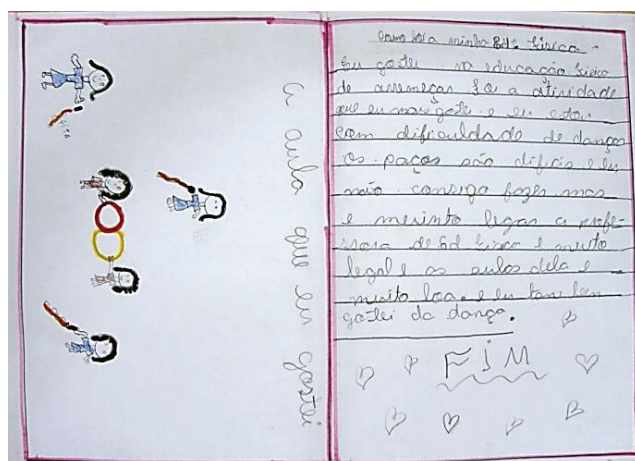 A aula que eu gostei
como foi a minha Ed. Física
Eu gostei na educação física
de arremeçar foi a atividade
que eu mais gotei e eu estou
com dificuldade de dançar
os paços são dificis e eu
não consigo fazer mas
e muinto legar a profe-
ssora de Ed física e muito
legal e as aulas dela e
muito boa. e eu tan ben
gostei da dança.
FIM